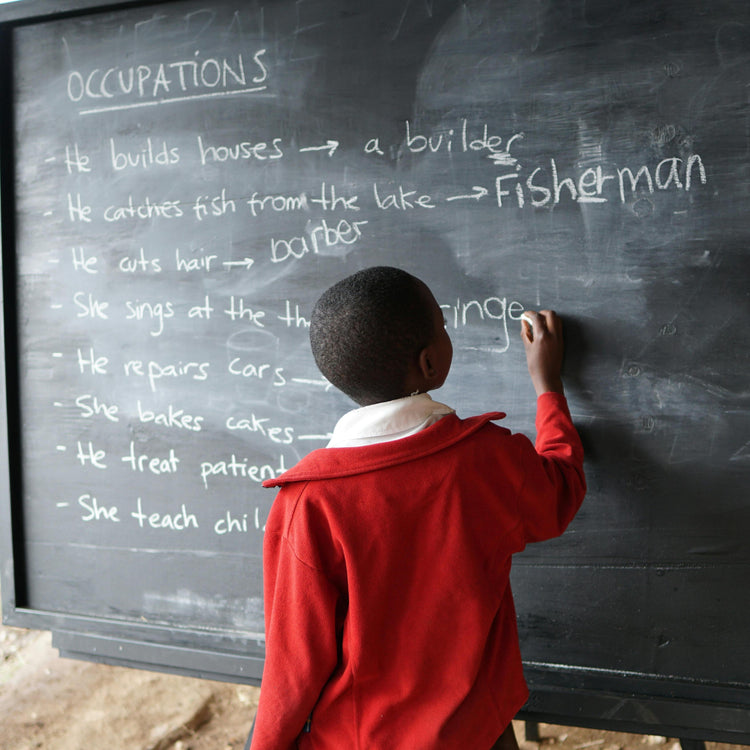 OCCUPATIONS
- He builds houses → a builder
- He catches fish from the lake → Fisherman
- He cuts hair → barber
- She sings at the the
- He repairs cars
- She bakes cakes
- He treat
- She teach